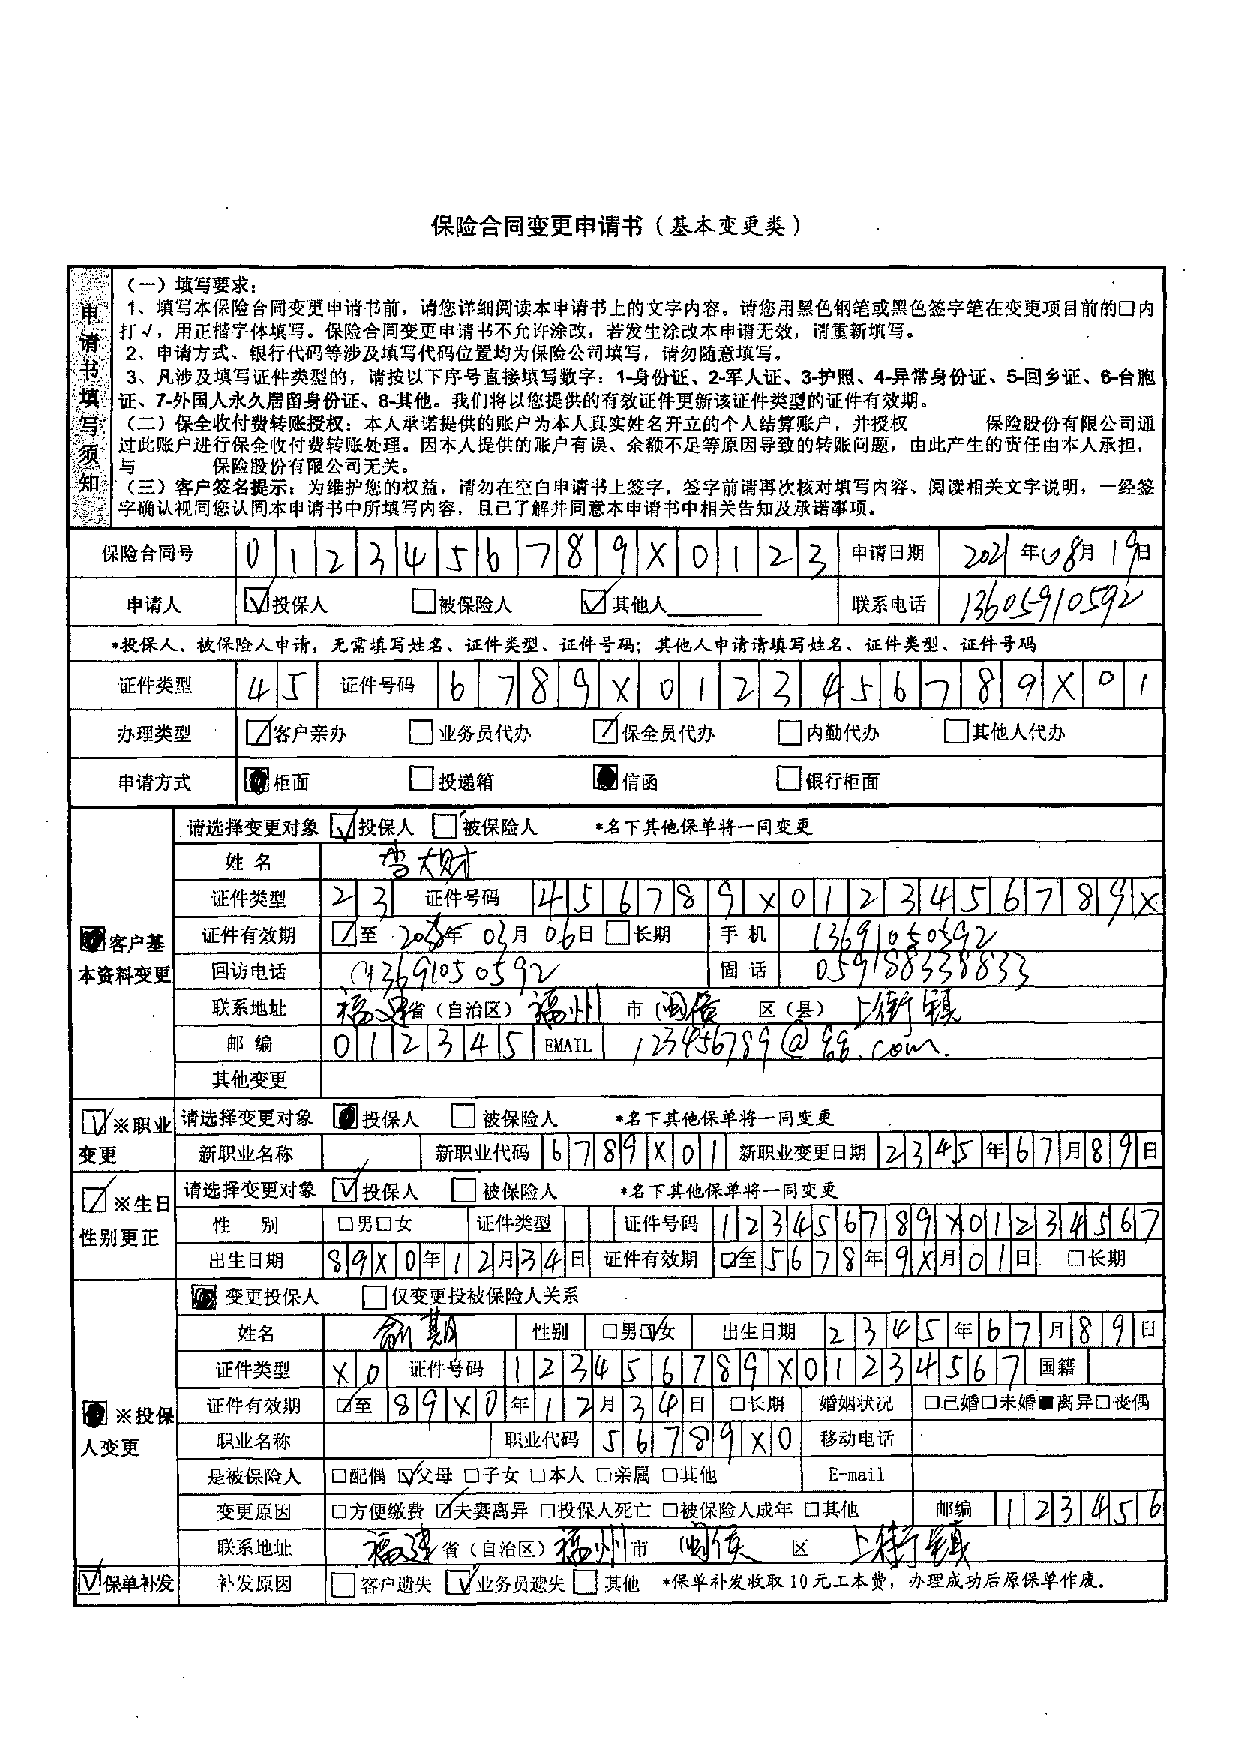 保险合同变更申请书（基本变更类）
申请书填写须知
（一）填写要求：
1、填写本保险合同变更申请书前，请您详细阅读本申请书上的文字内容。请您用黑色钢笔或黑色签字笔在变更项目前的□内
打√，用正楷字体填写。保险合同变更申请书不允许涂改，若发生涂改本申请无效，请重新填写。
2、申请方式、银行代码等涉及填写代码位置均为保险公司填写，请勿随意填写。
3、凡涉及填写证件类型的，请按以下序号直接填写数字：1-身份证、2-军人证、3-护照、4-异常身份证、5-回乡证、6-台胞
证、7-外国人永久居留身份证、8-其他。我们将以您提供的有效证件更新该证件类型的证件有效期。
（二）保全收付费转账授权：本人承诺提供的账户为本人真实姓名开立的个人结算账户，并授权 保险股份有限公司通
过此账户进行保全收付费转账处理。因本人提供的账户有误、余额不足等原因导致的转账问题，由此产生的责任由本人承担，
与 保险股份有限公司无关。
（三）客户签名提示：为维护您的权益，请勿在空白申请书上签字，签字前请再次核对填写内容、阅读相关文字说明，一经签
字确认视同您认同本申请书中所填写内容，且已了解并同意本申请书中相关告知及承诺事项。
保险合同号 0123456789X0123 申请日期 2021年08月19日
申请人 ☑投保人 □被保险人 ☑其他人 联系电话 13605910592
*投保人、被保险人申请，无需填写姓名、证件类型、证件号码；其他人申请请填写姓名、证件类型、证件号码
证件类型 45 证件号码 6789X0123456789X01
办理类型 ☑客户亲办 □业务员代办 ☑保全员代办 □内勤代办 □其他人代办
申请方式 ■柜面 □投递箱 ■信函 □银行柜面
■客户基本资料变更
请选择变更对象 ☑投保人 □被保险人 *名下其他保单将一同变更
姓名 李大财
证件类型 23 证件号码 456789X0123456789X
证件有效期 ☑至 年03月06日 □长期 手机 13691050592
回访电话 13691050592 固话 059188338833
联系地址 福建省（自治区）福州市 闽侯 区（县）上街镇
邮编 012345 EMAIL 123456789@qq.com.
其他变更
☑※职业变更
请选择变更对象 ■投保人 □被保险人 *名下其他保单将一同变更
新职业名称 新职业代码 6789X01 新职业变更日期 2345年67月89日
☑※生日性别更正
请选择变更对象 ☑投保人 □被保险人 *名下其他保单将一同变更
性别 □男□女 证件类型 证件号码 123456789X01234567
出生日期 89X0年12月34日 证件有效期 ☑至5678年9X月01日 □长期
■※投保人变更
■变更投保人 □仅变更投被保险人关系
姓名 俞期 性别 □男☑女 出生日期 2345年67月89日
证件类型 X0 证件号码 123456789X01234567 国籍
证件有效期 ☑至89X0年12月34日 □长期 婚姻状况 □已婚□未婚■离异□丧偶
职业名称 职业代码 56789X0 移动电话
是被保险人 □配偶 ☑父母 □子女 □本人 □亲属 □其他 E-mail
变更原因 □方便缴费 ☑夫妻离异 □投保人死亡 □被保险人成年 □其他 邮编 123456
联系地址 福建省（自治区）福州市 闽侯 区 上街镇
☑保单补发 补发原因 □客户遗失 ☑业务员遗失 □其他 *保单补发收取10元工本费，办理成功后原保单作废。